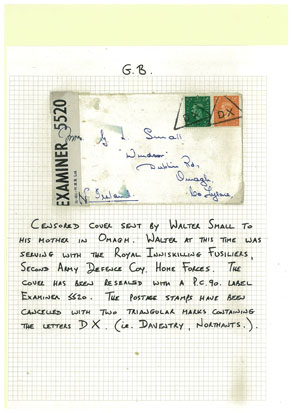 G.B.
EXAMINER 5520
DX
DX
Mrs G L Small
"Windsor"
Dublin Rd.
Omagh.
Co Tyrone.
N. Ireland.
CENSORED COVER SENT BY WALTER SMALL TO
HIS MOTHER IN OMAGH. WALTER AT THIS TIME WAS
SERVING WITH THE ROYAL INNISKILLING FUSILIERS,
SECOND ARMY DEFENCE COY. HOME FORCES. THE
COVER HAS BEEN RESEALED WITH A P.C. 90. LABEL
EXAMINER 5520. THE POSTAGE STAMPS HAVE BEEN
CANCELLED WITH TWO TRIANGULAR MARKS CONTAINING
THE LETTERS D X. (i.e. DAVENTRY, NORTHANTS.).